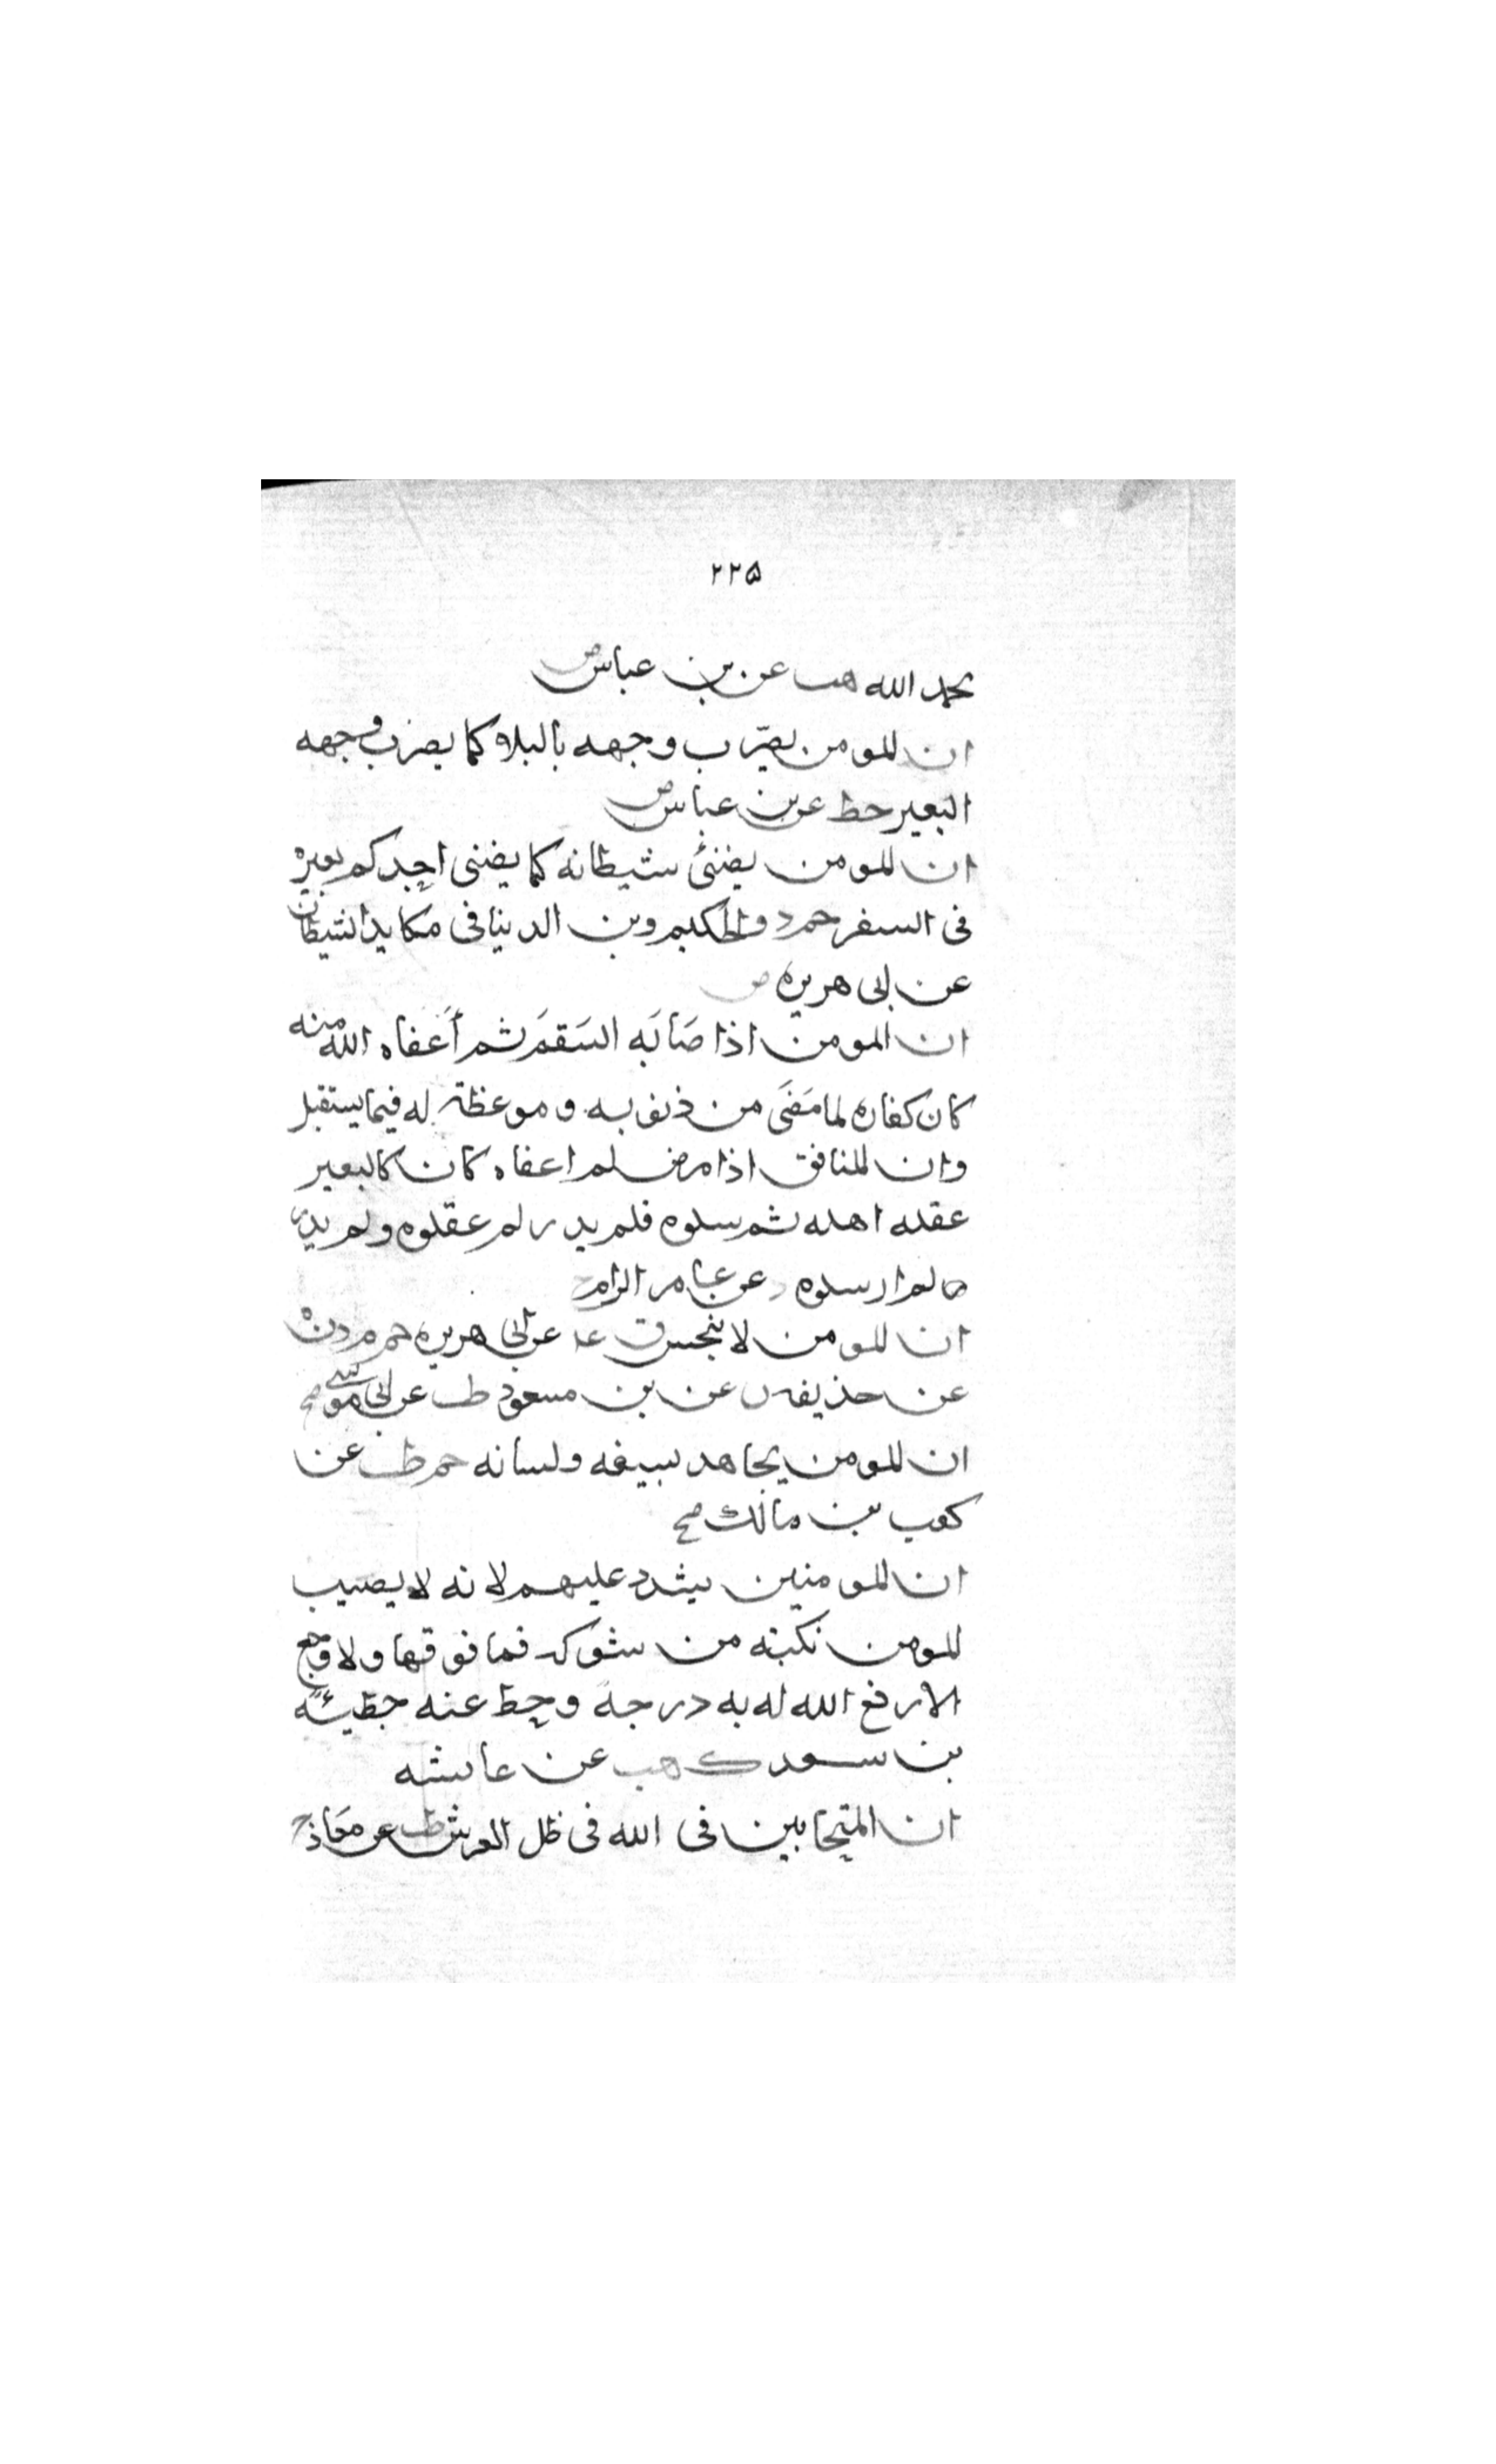 ٢٢٥
بحمد الله هب عن بن عباس ض
ان المومن يضرب وجهه بالبلاء كما يضرب وجهه
البعير خط عن بن عباس ض
ان المومن ينضئ شيطانه كما ينضى احدكم بعيره
فى السفر حم والحكيم وبن الدنيا فى مكايد الشيطان
عن ابى هريره ض
ان المومن اذا صَابَه السَقمَ ثم أَعَفاه الله منه
كان كفاره لما مَضَى من ذنوبه وموعظة له فيما يستقبل
وان المنافق اذا مرض ثم اعفاه كان كالبعير
عقله اهله ثم سلوه فلم يدر لم عقلوه ولم يدر
لم ارسلوه د عن عامر الرام
ان المومن لا ينجس ق عد عن ابى هريره حم م د ن ه
عن حذيفه ن عن بن مسعود طب عن ابى موسى صح
ان المومن يجاهد بسيفه ولسانه حم طب عن
كعب بن مالك صح
ان المومنين يشدد عليهم لانه لا يصيب
المومن نكبته من شوكة فما فوقها ولا وجع
الا رفع الله له به درجة وحط عنه خطيئة
بن سعد ك هب عن عايشه
ان المتحابين فى الله فى ظل العرش طب عن معاذ ح